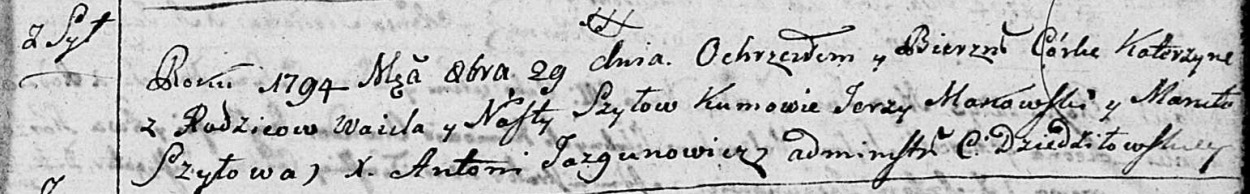 z Szył
Roku 1794 Mcą 8bra 29 dnia. Ochrzciłem y Bierzm Córke Katerzyne
z Rodzicow Wasila y Nasty Szyłow Kumowie Jerzy Makowski y Maruta
Szyłowa) X. Antoni Jazgunowicz administr C. Dziedziłowskiey